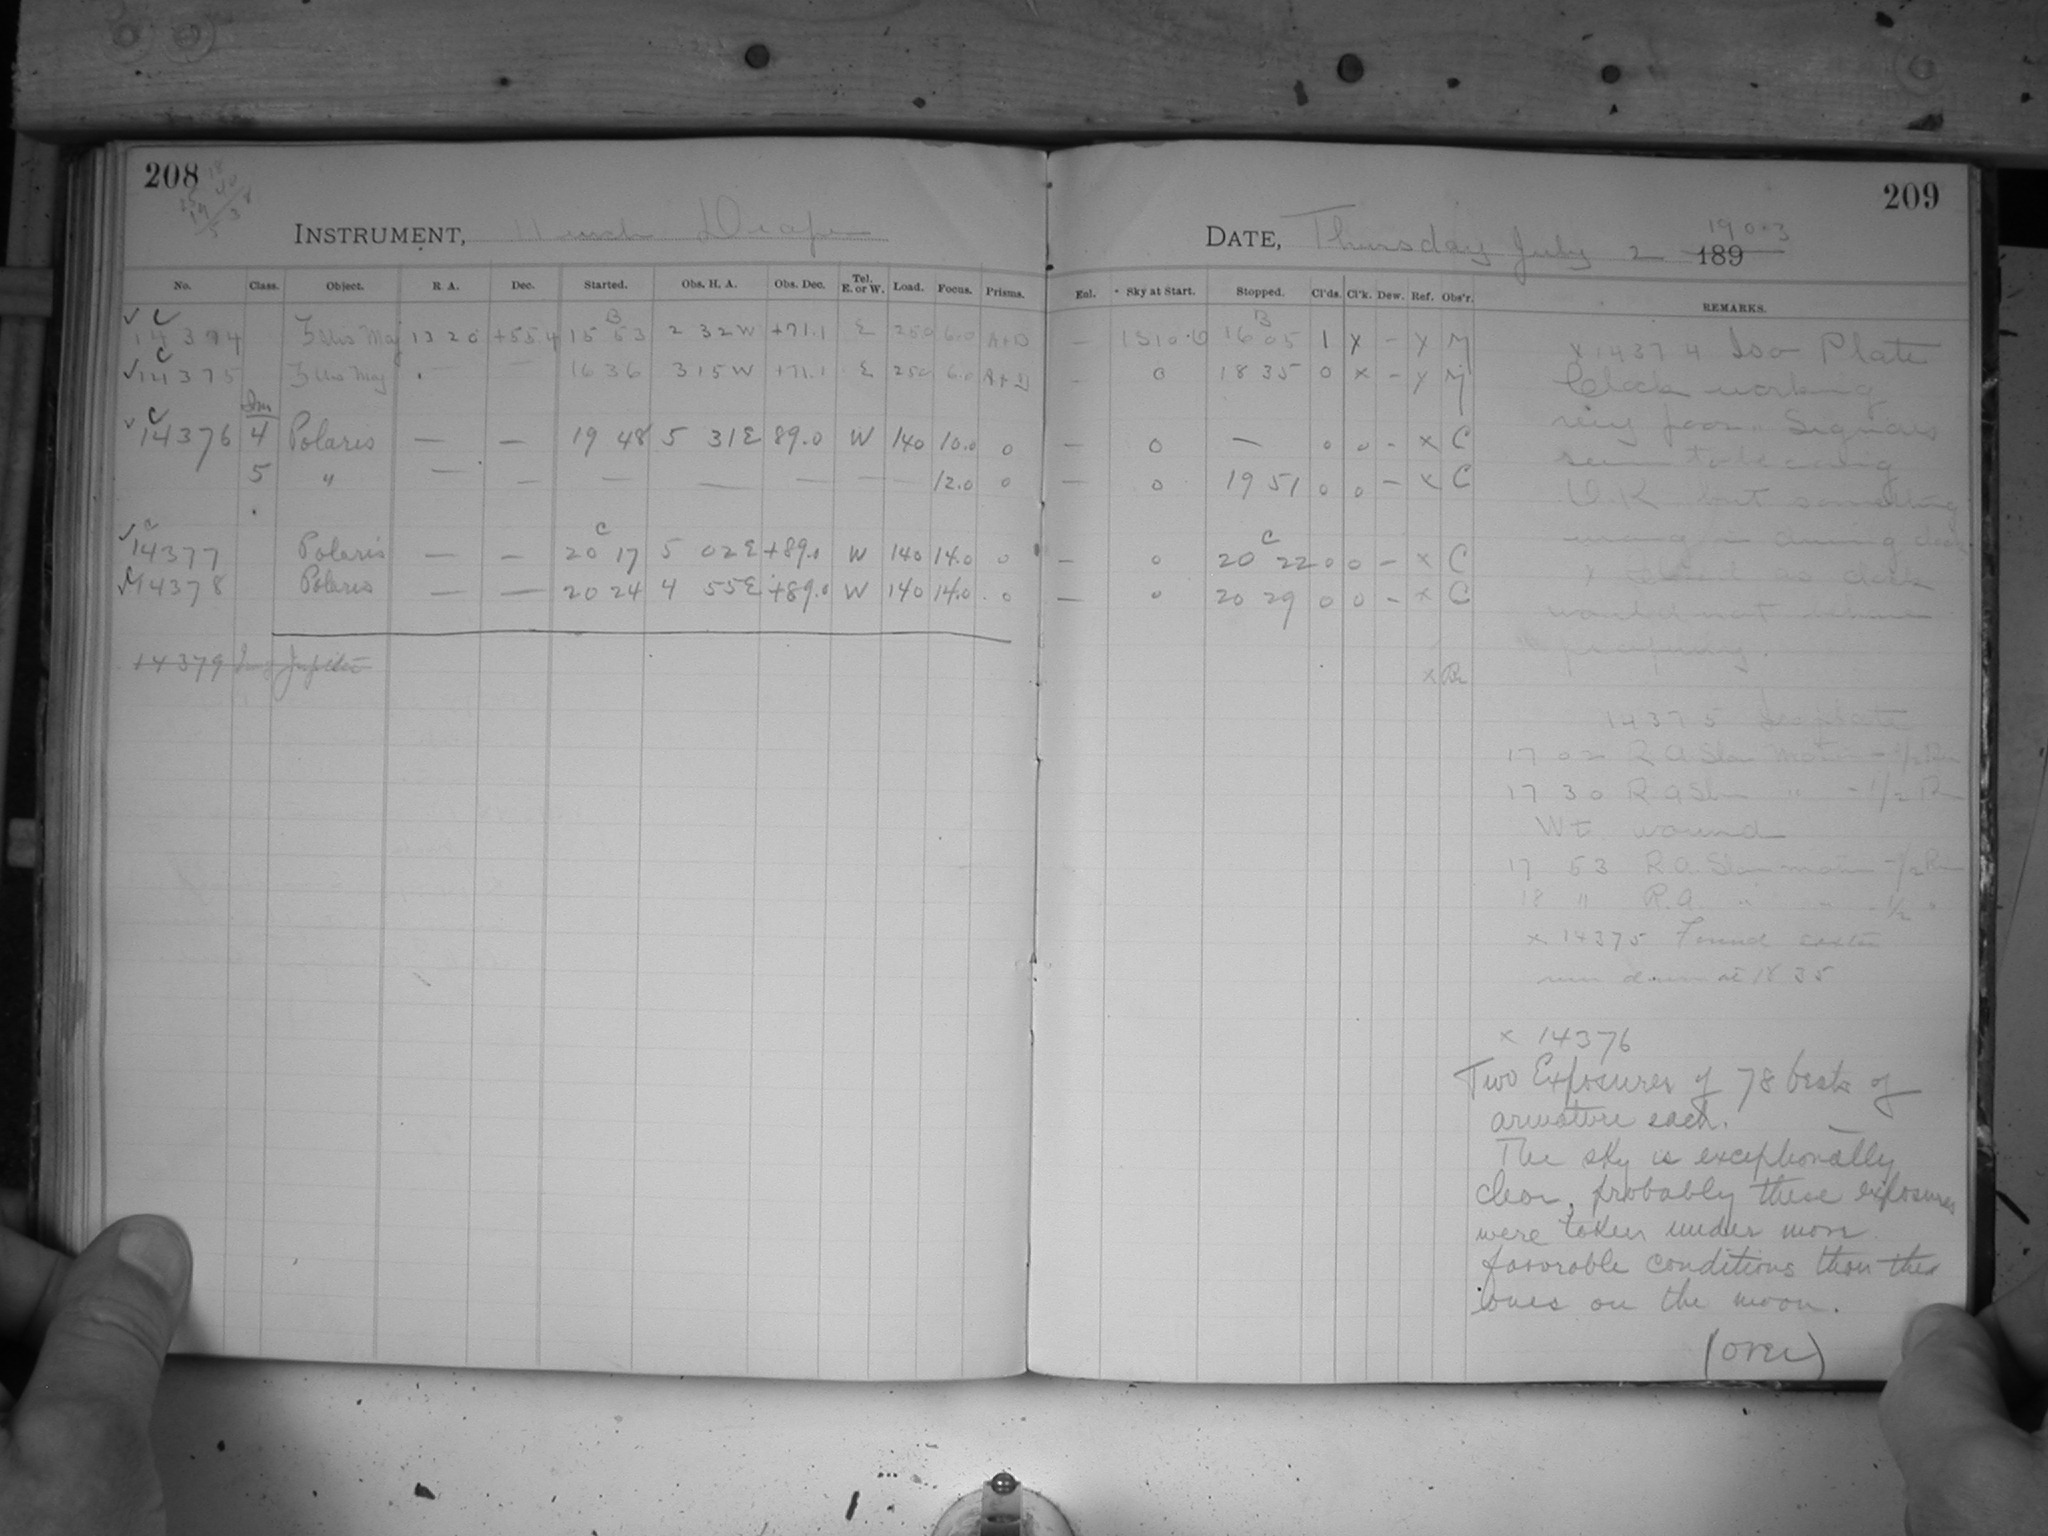 208
INSTRUMENT, 11 inch Draper
No. Class. Object. R A. Dec. Started. Obs. H. A. Obs. Dec. Tel. E. or W. Load. Focus. Prisms.
C B
14374 ζ Urs Maj 13 20 +55.4 15 53 2 32 W +71.1 E 250 6.0 A+D
C
14375 ζ Urs Maj — — 16 36 3 15 W +71.1 E 250 6.0
C
14376 4 Polaris — — 19 48 5 31 E 89.0 W 140 10.0 0
5 " — — — — — — — 12.0 0
C C
14377 Polaris — — 20 17 5 02 E +89.0 W 140 14.0 0
14378 Polaris — — 20 24 4 55 E +89.0 W 140 14.0 0
14379 Jupiter
209
DATE, Thursday July 2 189 1903
Enl. Sky at Start. Stopped. Cl'ds. Cl'k. Dew. Ref. Obs'r. REMARKS.
B
— 16 05 1 x - y M
— 0 18 35 0 x - y M
— 0 — 0 0 - x C
— 0 19 51 0 0 - x C
C
— 0 20 22 0 0 - x C
— 0 20 29 0 0 - x C
x
x 14374 Iso Plate
Clock working
very poor. Signals
seem to be going
O.K. but something
wrong in driving
would not
properly.
14375 Iso plate
17 02 R A Slow motion - 1/2 Rev
17 30 R A Slow " - 1/2 Rev
Wt. wound
17 53 R.A. Slow motion - 1/2 Rev
18 11 R.A. " " - 1/2 "
x 14375 Found
run down at 18 35
x 14376
Two Exposures of 78 beats of
armature each.
The sky is exceptionally
clear, probably these exposures
were taken under more
favorable conditions than the
ones on the moon.
(over)